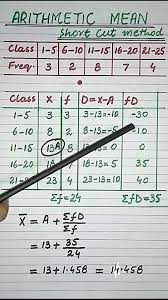 ARITHMETIC MEAN
Short Cut method
Class 1-5 6-10 11-15 16-20 21-25
Freq. 3 2 8 7 4
Class X f D=X-A fD
1-5 3 3 3-13=-10 -30
6-10 8 2 8-13=-5 -10
11-15 13A 8 0
16-20 18 18-13=5 35
21-25 23 4 23-13=10 40
Σf=24 ΣfD=35
X̄ = A + ΣfD/Σf
= 13 + 35/24
= 13+1.458 = 14.458